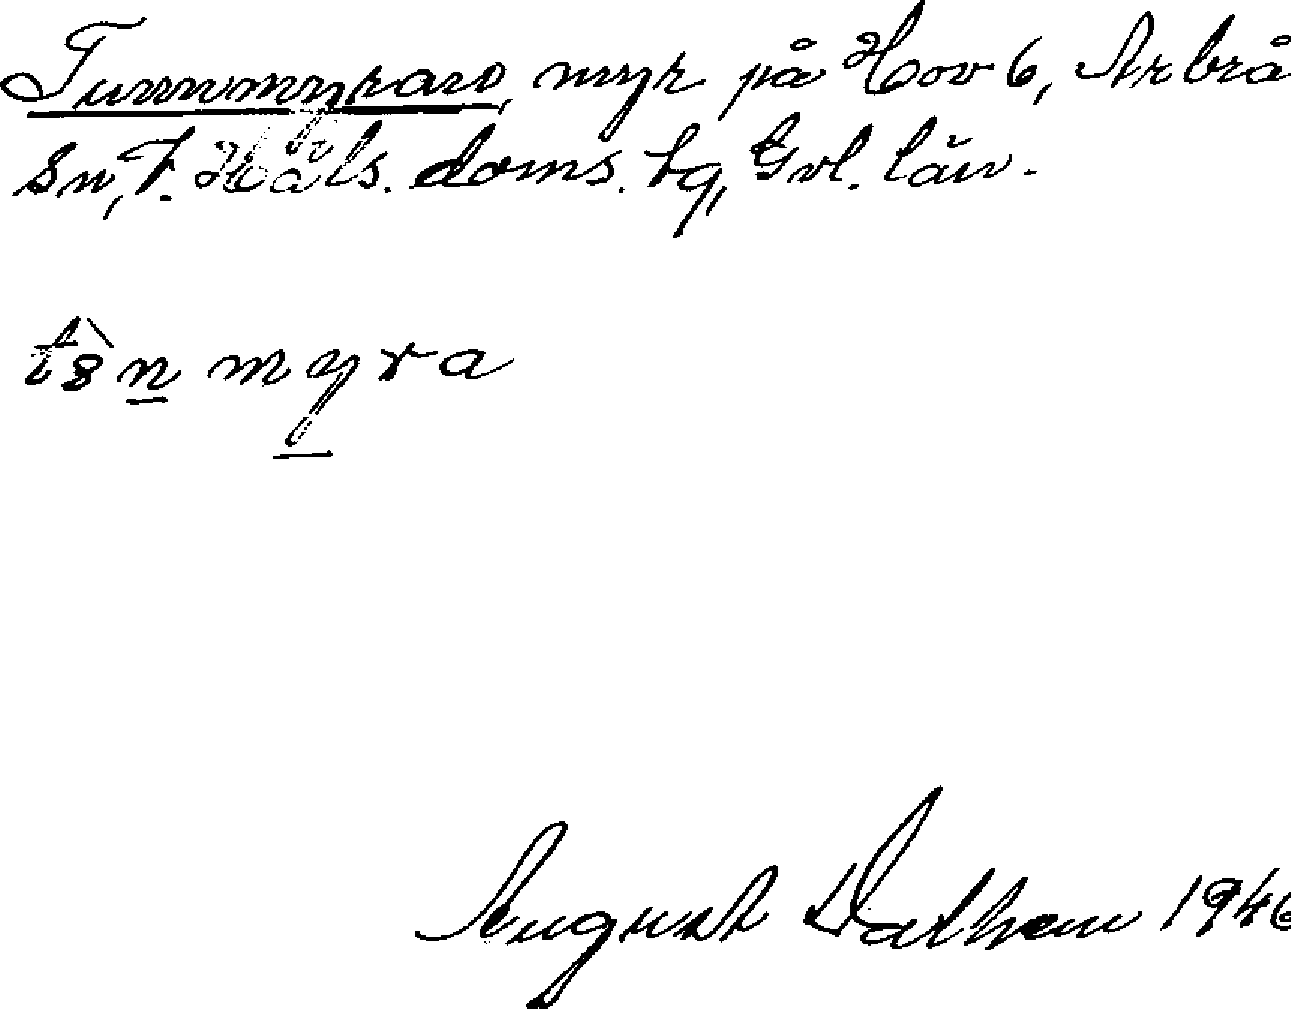 Tunnmyran, myr på Hov 6, Arbrå
sn, V. Häls. doms. tg, Gvl. län.
myra
August 1946